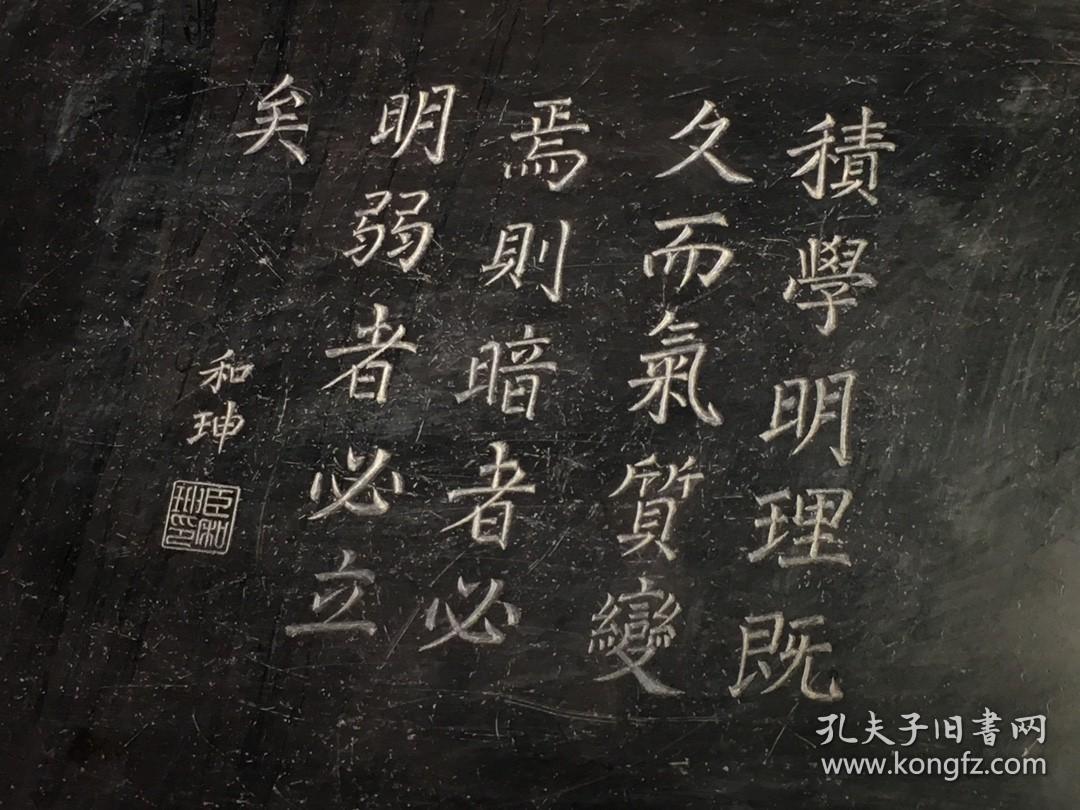 積學明理既
久而氣質變
焉則暗者必
明弱者必立
矣
和珅
臣和
珅印
孔夫子旧書网
www.kongfz.com